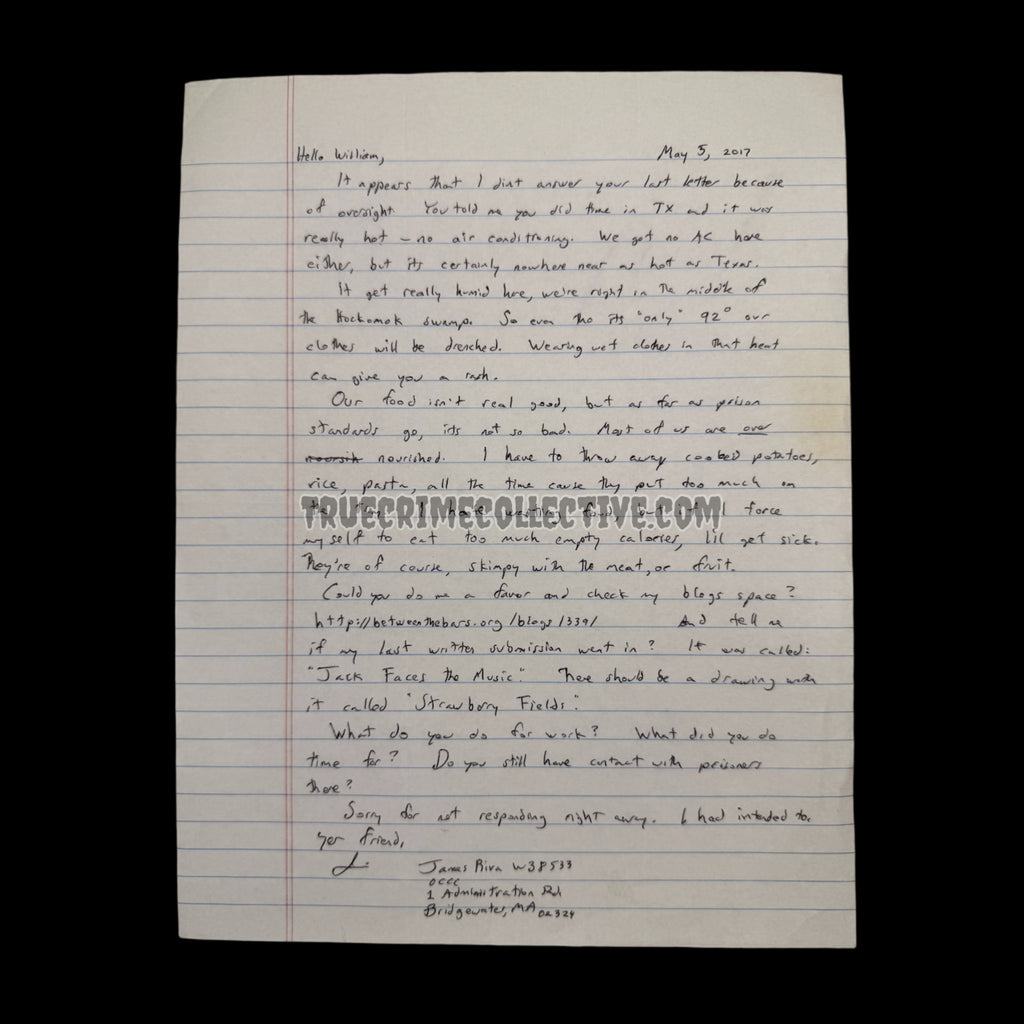 Hello William, May 5, 2017
It appears that I dint answer your last letter because
of oversight. You told me you did time in TX and it was
really hot – no air conditioning. We got no AC here
either, but its certainly nowhere near as hot as Texas.
It get really humid here, we're right in the middle of
the Hockomok swamp. So even tho its "only" 92° our
clothes will be drenched. Wearing wet clothes in that heat
can give you a rash.
Our food isn't real good, but as far as prison
standards go, its not so bad. Most of us are over
nourished. I have to throw away cooked potatoes,
rice, pasta, all the time cause they put too much on
the tray. I hate wasting food but if I force
TRUECRIMECOLLECTIVE.COM
myself to eat too much empty calories, I'll get sick.
They're of course, skimpy with the meat, or fruit.
Could you do me a favor and check my blogs space?
http://betweenthebars.org/blogs/339/ And tell me
if my last written submission went in? It was called:
"Jack Faces the Music". There should be a drawing with
it called "Strawberry Fields".
What do you do for work? What did you do
time for? Do you still have contact with prisoners
there?
Sorry for not responding right away. I had intended to.
Yer friend,
J. James Riva W38533
OCCC
1 Administration Rd
Bridgewater, MA 02324